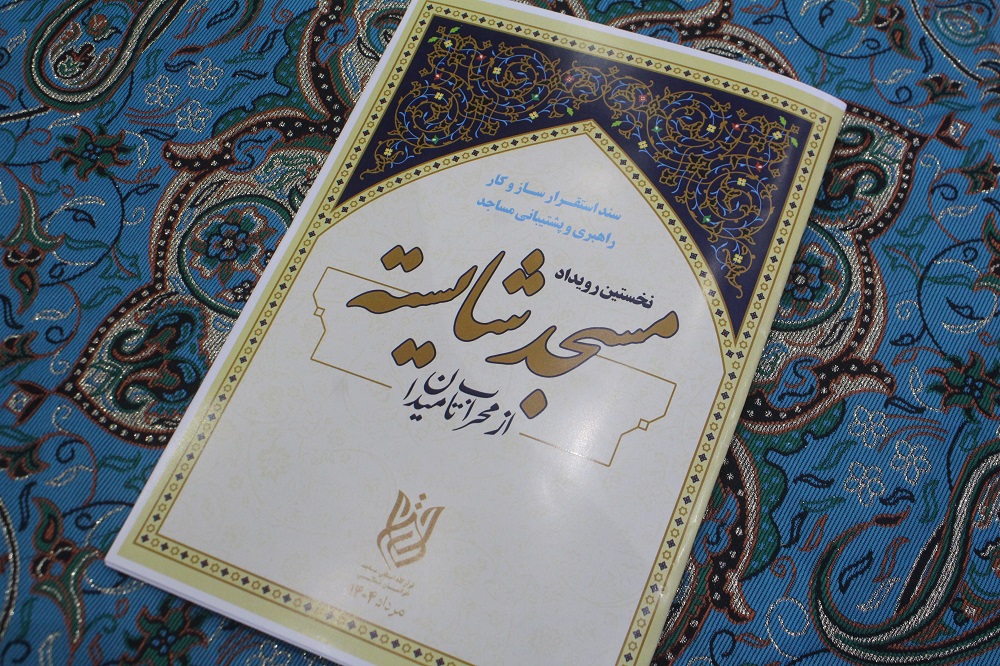 سند استقرار ساز و کار
راهبری و پشتیبانی مساجد
نخستین رویداد
مسجد شایسته
از محراب تا میدان
مرداد ۱۴۰۴